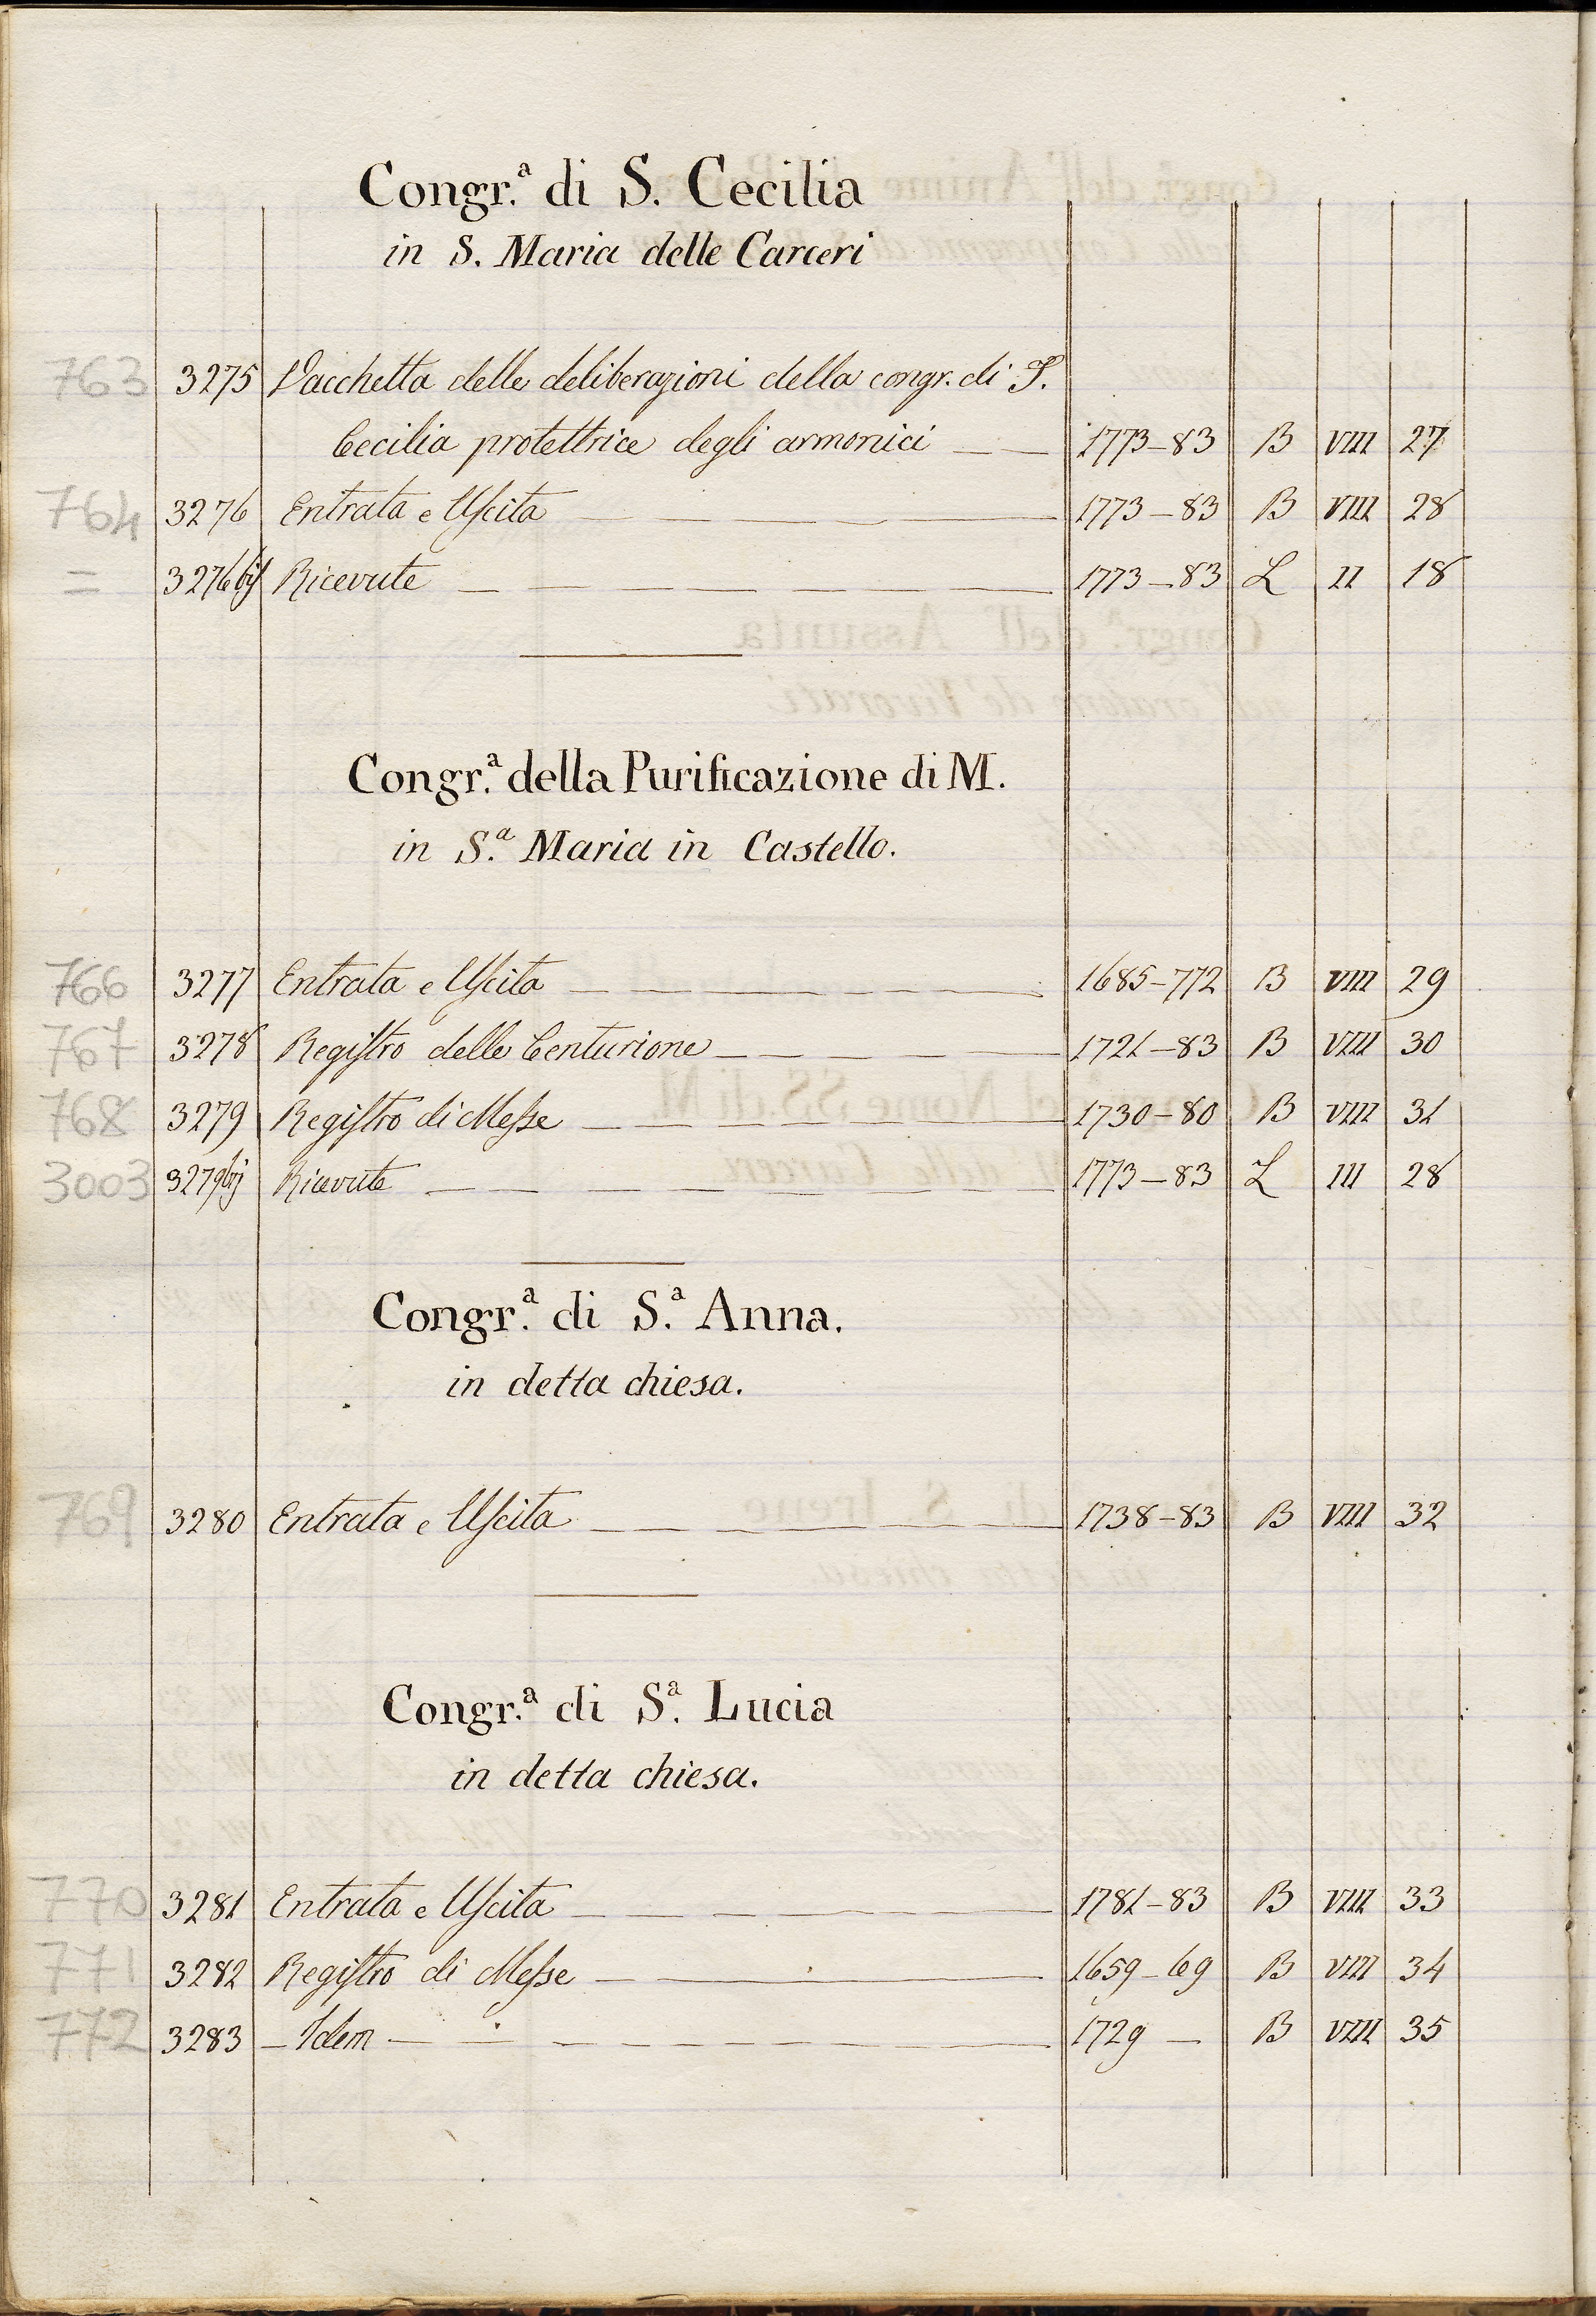 Congr.ª di S. Cecilia
in S. Maria delle Carceri
763 3275 Vacchetta delle deliberazioni della congr. di S.
Cecilia protettrice degli armonici — — 1773-83 B VIII 27
764 3276 Entrata e Uscita — — — — — — 1773-83 B VIII 28
= 3276 bis Ricevute — — — — — — — 1773-83 L II 18
Congr.ª della Purificazione di M.
in S.ª Maria in Castello.
766 3277 Entrata e Uscita — — — — — — 1685-772 B VIII 29
767 3278 Registro delle Centurione — — — — — 1721-83 B VIII 30
768 3279 Registro di Messe — — — — — — 1730-80 B VIII 31
3003 3279 bis Ricevute — — — — — — — — 1773-83 L III 28
Congr.ª di S.ª Anna.
in detta chiesa.
769 3280 Entrata e Uscita — — — — — — 1738-83 B VIII 32
Congr.ª di S.ª Lucia
in detta chiesa.
770 3281 Entrata e Uscita — — — — — — 1781-83 B VIII 33
771 3282 Registro di Messe — — — — 1659-69 B VIII 34
772 3283 — Idem — — — — — — — — 1729 — B VIII 35